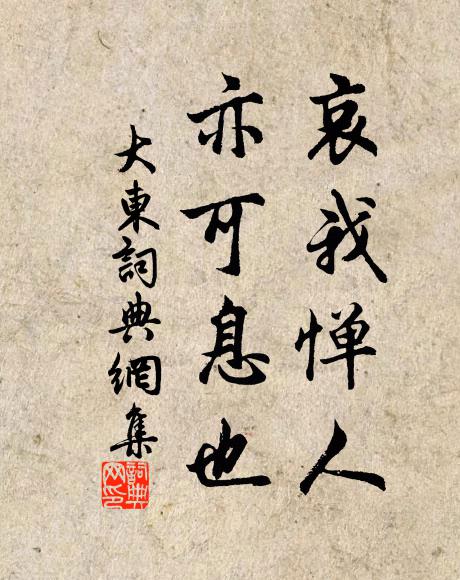 哀我惮人
亦可息也
大東詞典網集
詞典
网印